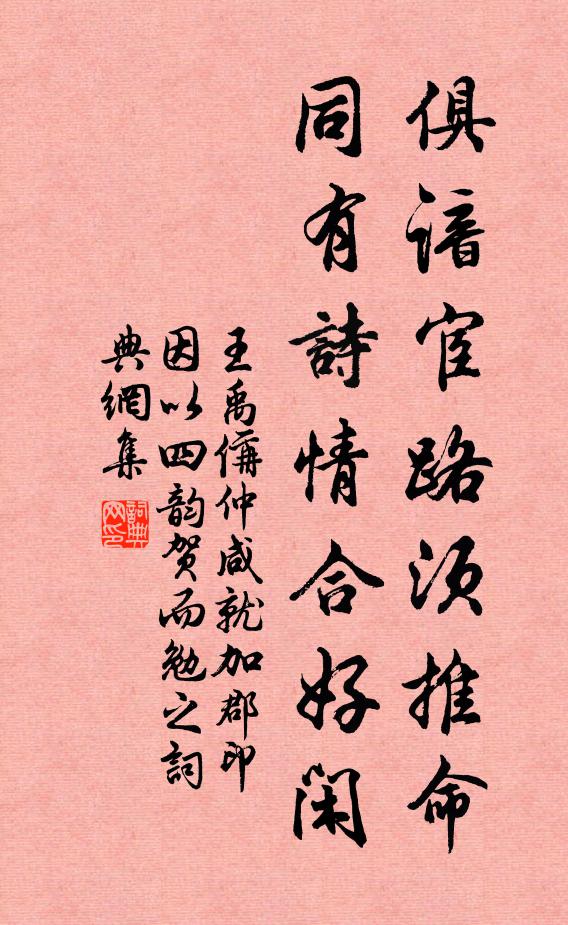 俱谙宦路须推命
同有詩情合好闲
王禹偁仲咸就加郡印
因以四韵贺而勉之詞
典網集
詞典网印